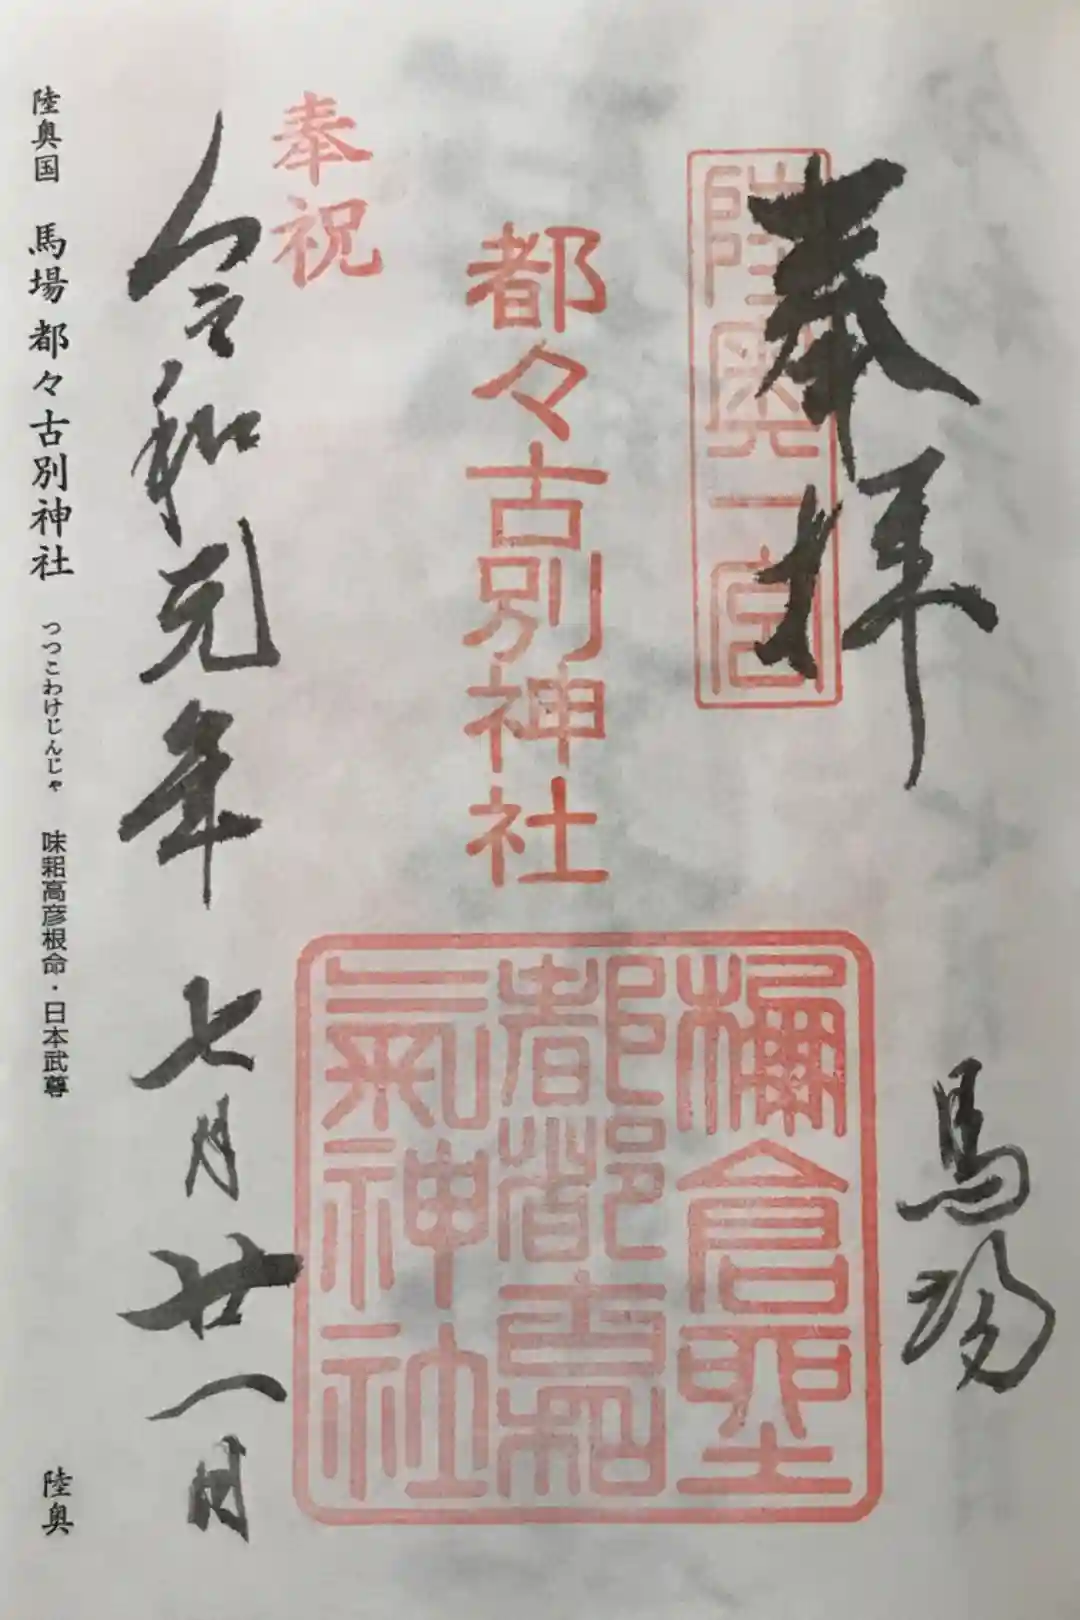 奉拝
馬場
陸奥一宮
都々古別神社
倉
都都古和
氣神社
奉祝
令和元年七月廿一日
陸奥国 馬場 都々古別神社 つつこわけじんじゃ 味耜高彦根命・日本武尊 陸奥